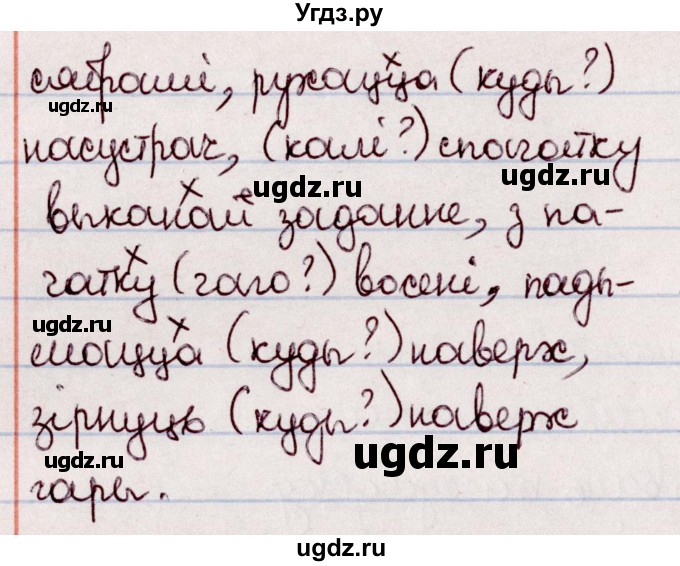 Угдз.ру
сябрамі, рухацца (куды?)
насустрач, (калі?) спачатку
выканай заданне, з па-
чатку (чаго?) восені, пады-
мацца (куды?) наверх,
зірнуць (куды?) наверх
гары.
ugdz.ru
ugdz.ru
ugdz.ru
ugdz.ru
ugdz.ru
ugdz.ru
ugdz.ru
ugdz.ru